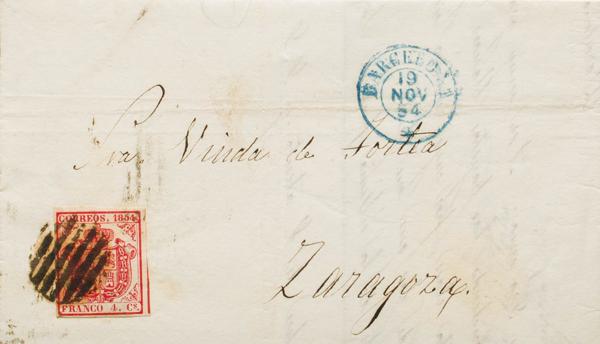 BARCELONA
19
NOV
54
Sra. Viuda de Fortia
CORREOS. 1854
FRANCO 4. Cs.
Zaragoza.